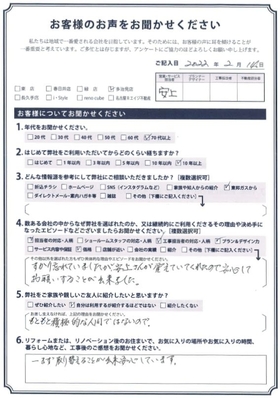 お客様のお声をお聞かせください
私たちは地域で一番愛される会社を目指しています。そのためには、お客様の声に耳を傾けることが
一番重要と考えています。ご多忙とは存じますが、アンケートにご協力のほどよろしくお願い申し上げます。
ご記入日 2022年2月14日
安上
東店 春日井店 緑店 多治見店
長久手店 i・Style reno-cube 名古屋サエイジ不動産
お客様についてお聞かせください
1.年代をお聞かせください。
20代 30代 40代 50代 60代 70代以上
2.はじめて弊社をご利用いただいてからどのくらい経ちますか？
はじめて 1年以内 3年以内 5年以内 10年以内 10年以上
3.どんな情報源を参考にして弊社にご相談いただきましたか？【複数選択可】
折込チラシ ホームページ SNS（インスタグラムなど） ご家族や知人からの紹介 東邦ガスから
ダイレクトメール・案内ハガキ等 雑誌 その他（下欄にご記入ください）
4.数ある会社の中からなぜ弊社を選ばれたのか、又は継続的にご利用くださるその理由や決め手に
なったエピソードなどございましたらお聞かせください。【複数選択可】
担当者の対応・人柄 ショールームスタッフの対応・人柄 工事担当者の対応・人柄 プラン＆デザイン力
サービス内容や品質 価格 店舗が近い 会社の実績 その他（下欄にご記入ください）
すっかり忘れていましたが安上さんが覚えていてくれたので安心して
お願いすることが出来ました。
5.弊社をご家族や親しいご友人に紹介したいと思いますか？
ぜひ紹介したい 自分は利用するが紹介するほどではない 紹介したくない
もともと積極的な人間ではないので。
6.リフォームまたは、リノベーション後のお住まいで、お気に入りの場所やお気に入りの時間、
暮らし心地など、工事後のご感想をお聞かせください。